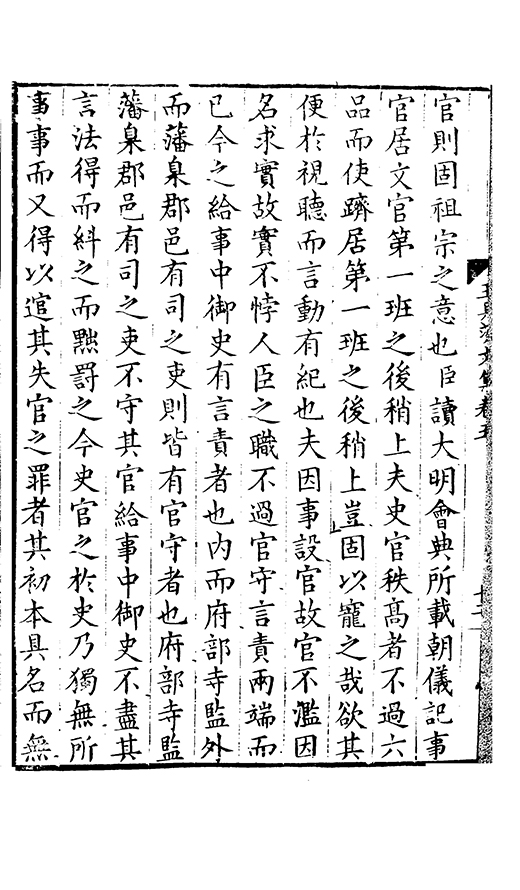 官則固祖宗之意也臣讀大明會典所載朝儀記事
官居文官第一班之後稍上夫史官秩高者不過六
品而使躋居第一班之後稍上豈固以寵之哉欲其
便於視聽而言動有紀也夫因事設官故官不濫因
名求實故實不悖人臣之職不過官守言責兩端而
已今之給事中御史有言責者也内而府部寺監外
而藩臬郡邑有司之吏則皆有官守者也府部寺監
藩臬郡邑有司之吏不守其官給事中御史不盡其
言法得而糾之而黜罰之今史官之於史乃獨無所
事事而又得以逭其失官之罪者其初本具名而無
文集卷五
十二